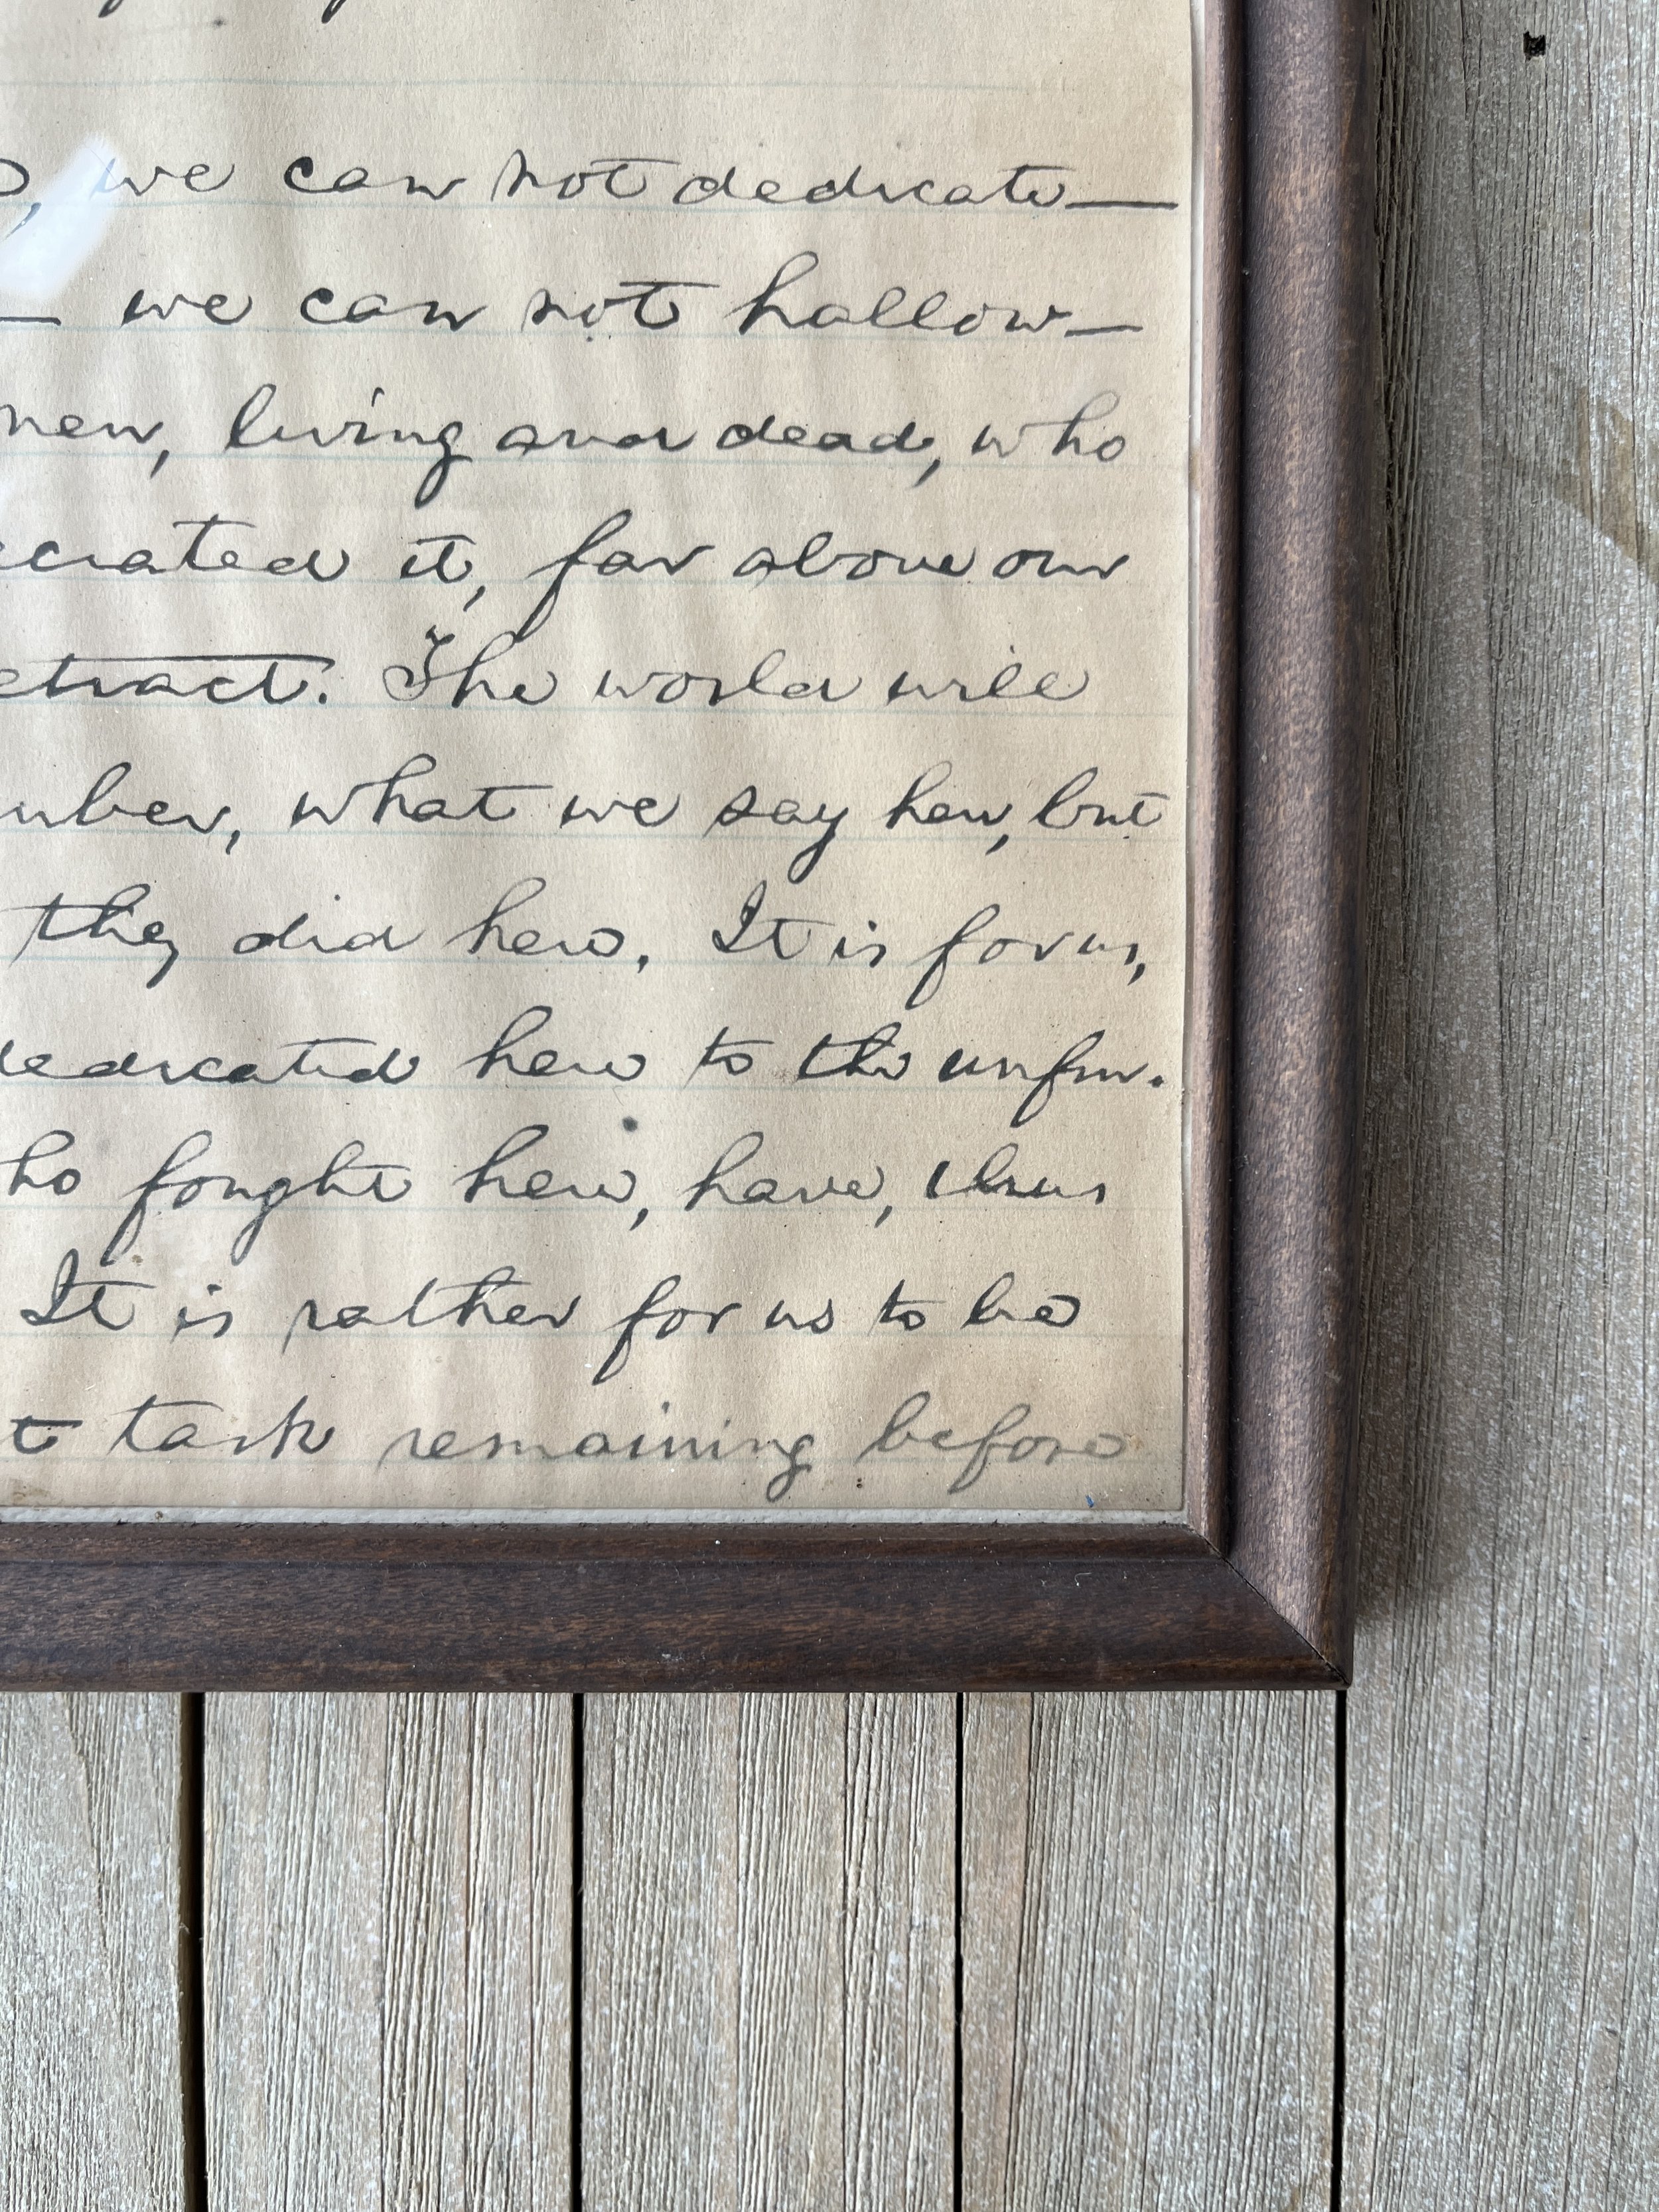 , we can not dedicate—
— we can not hallow—
men, living and dead, who
ecrated it, far above our
etract. The world will
mber, what we say here, but
they did here. It is for us,
dedicated here to the unfin-
ho fought here, have, thus
It is rather for us to be
t task remaining before